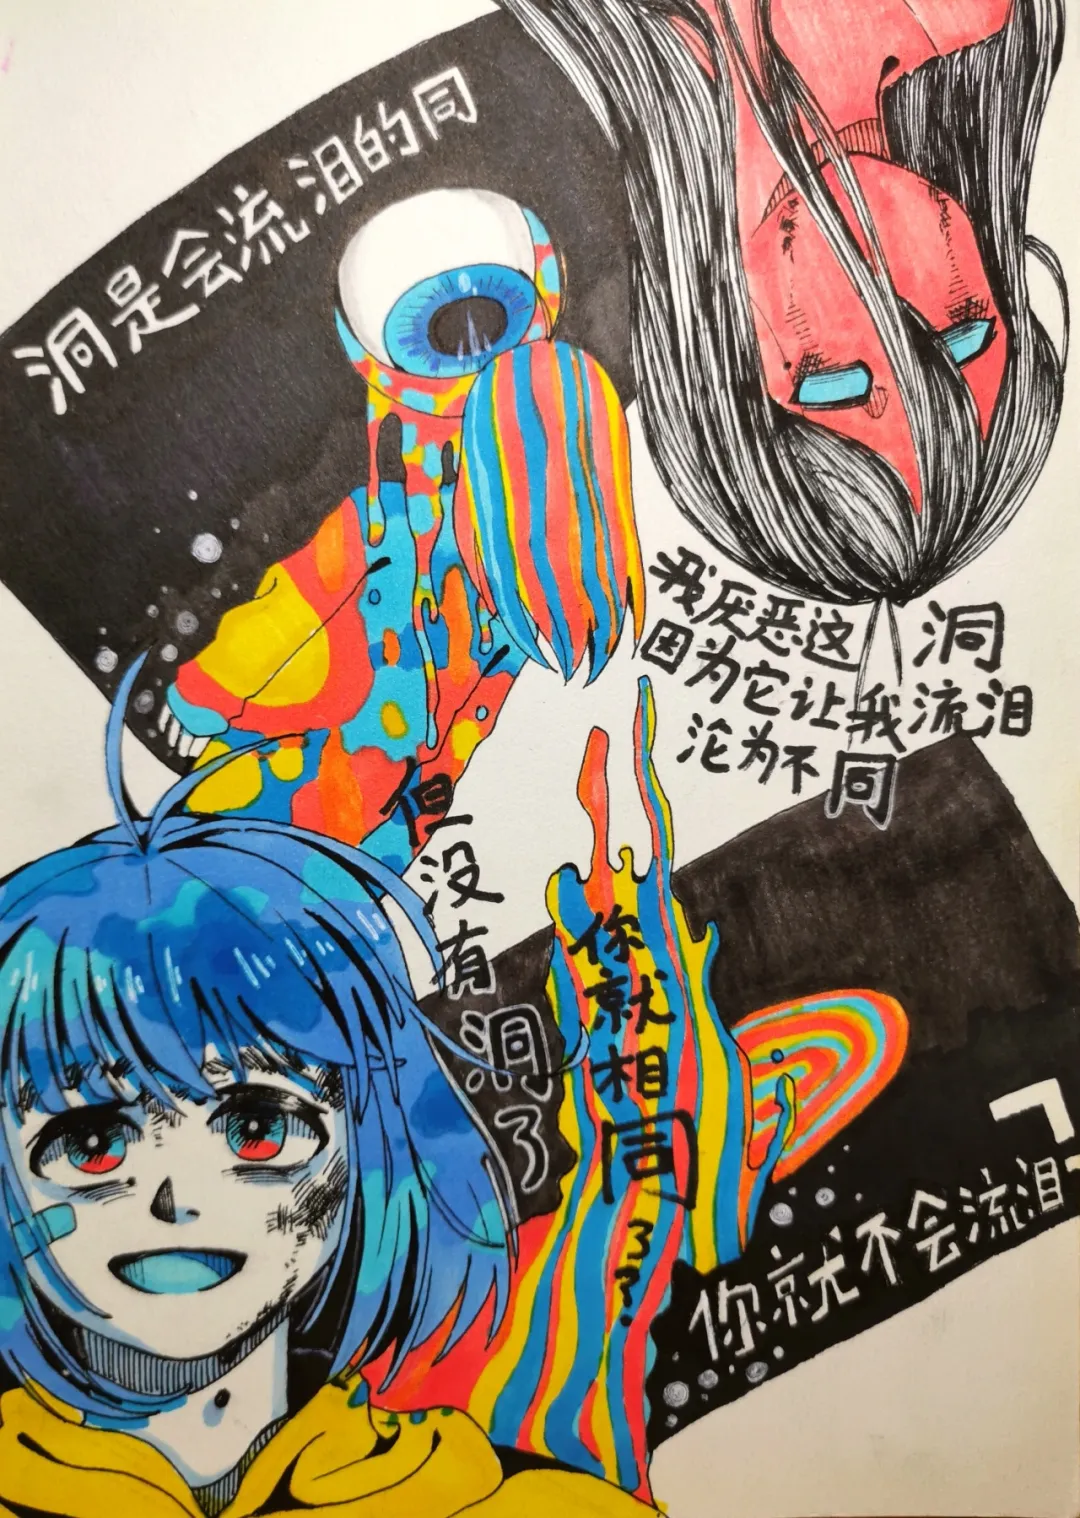 洞是会流泪的同
我厌恶这洞
因为它让我流泪
沦为不同
但没有洞了
你就相同了？
你就不会流泪